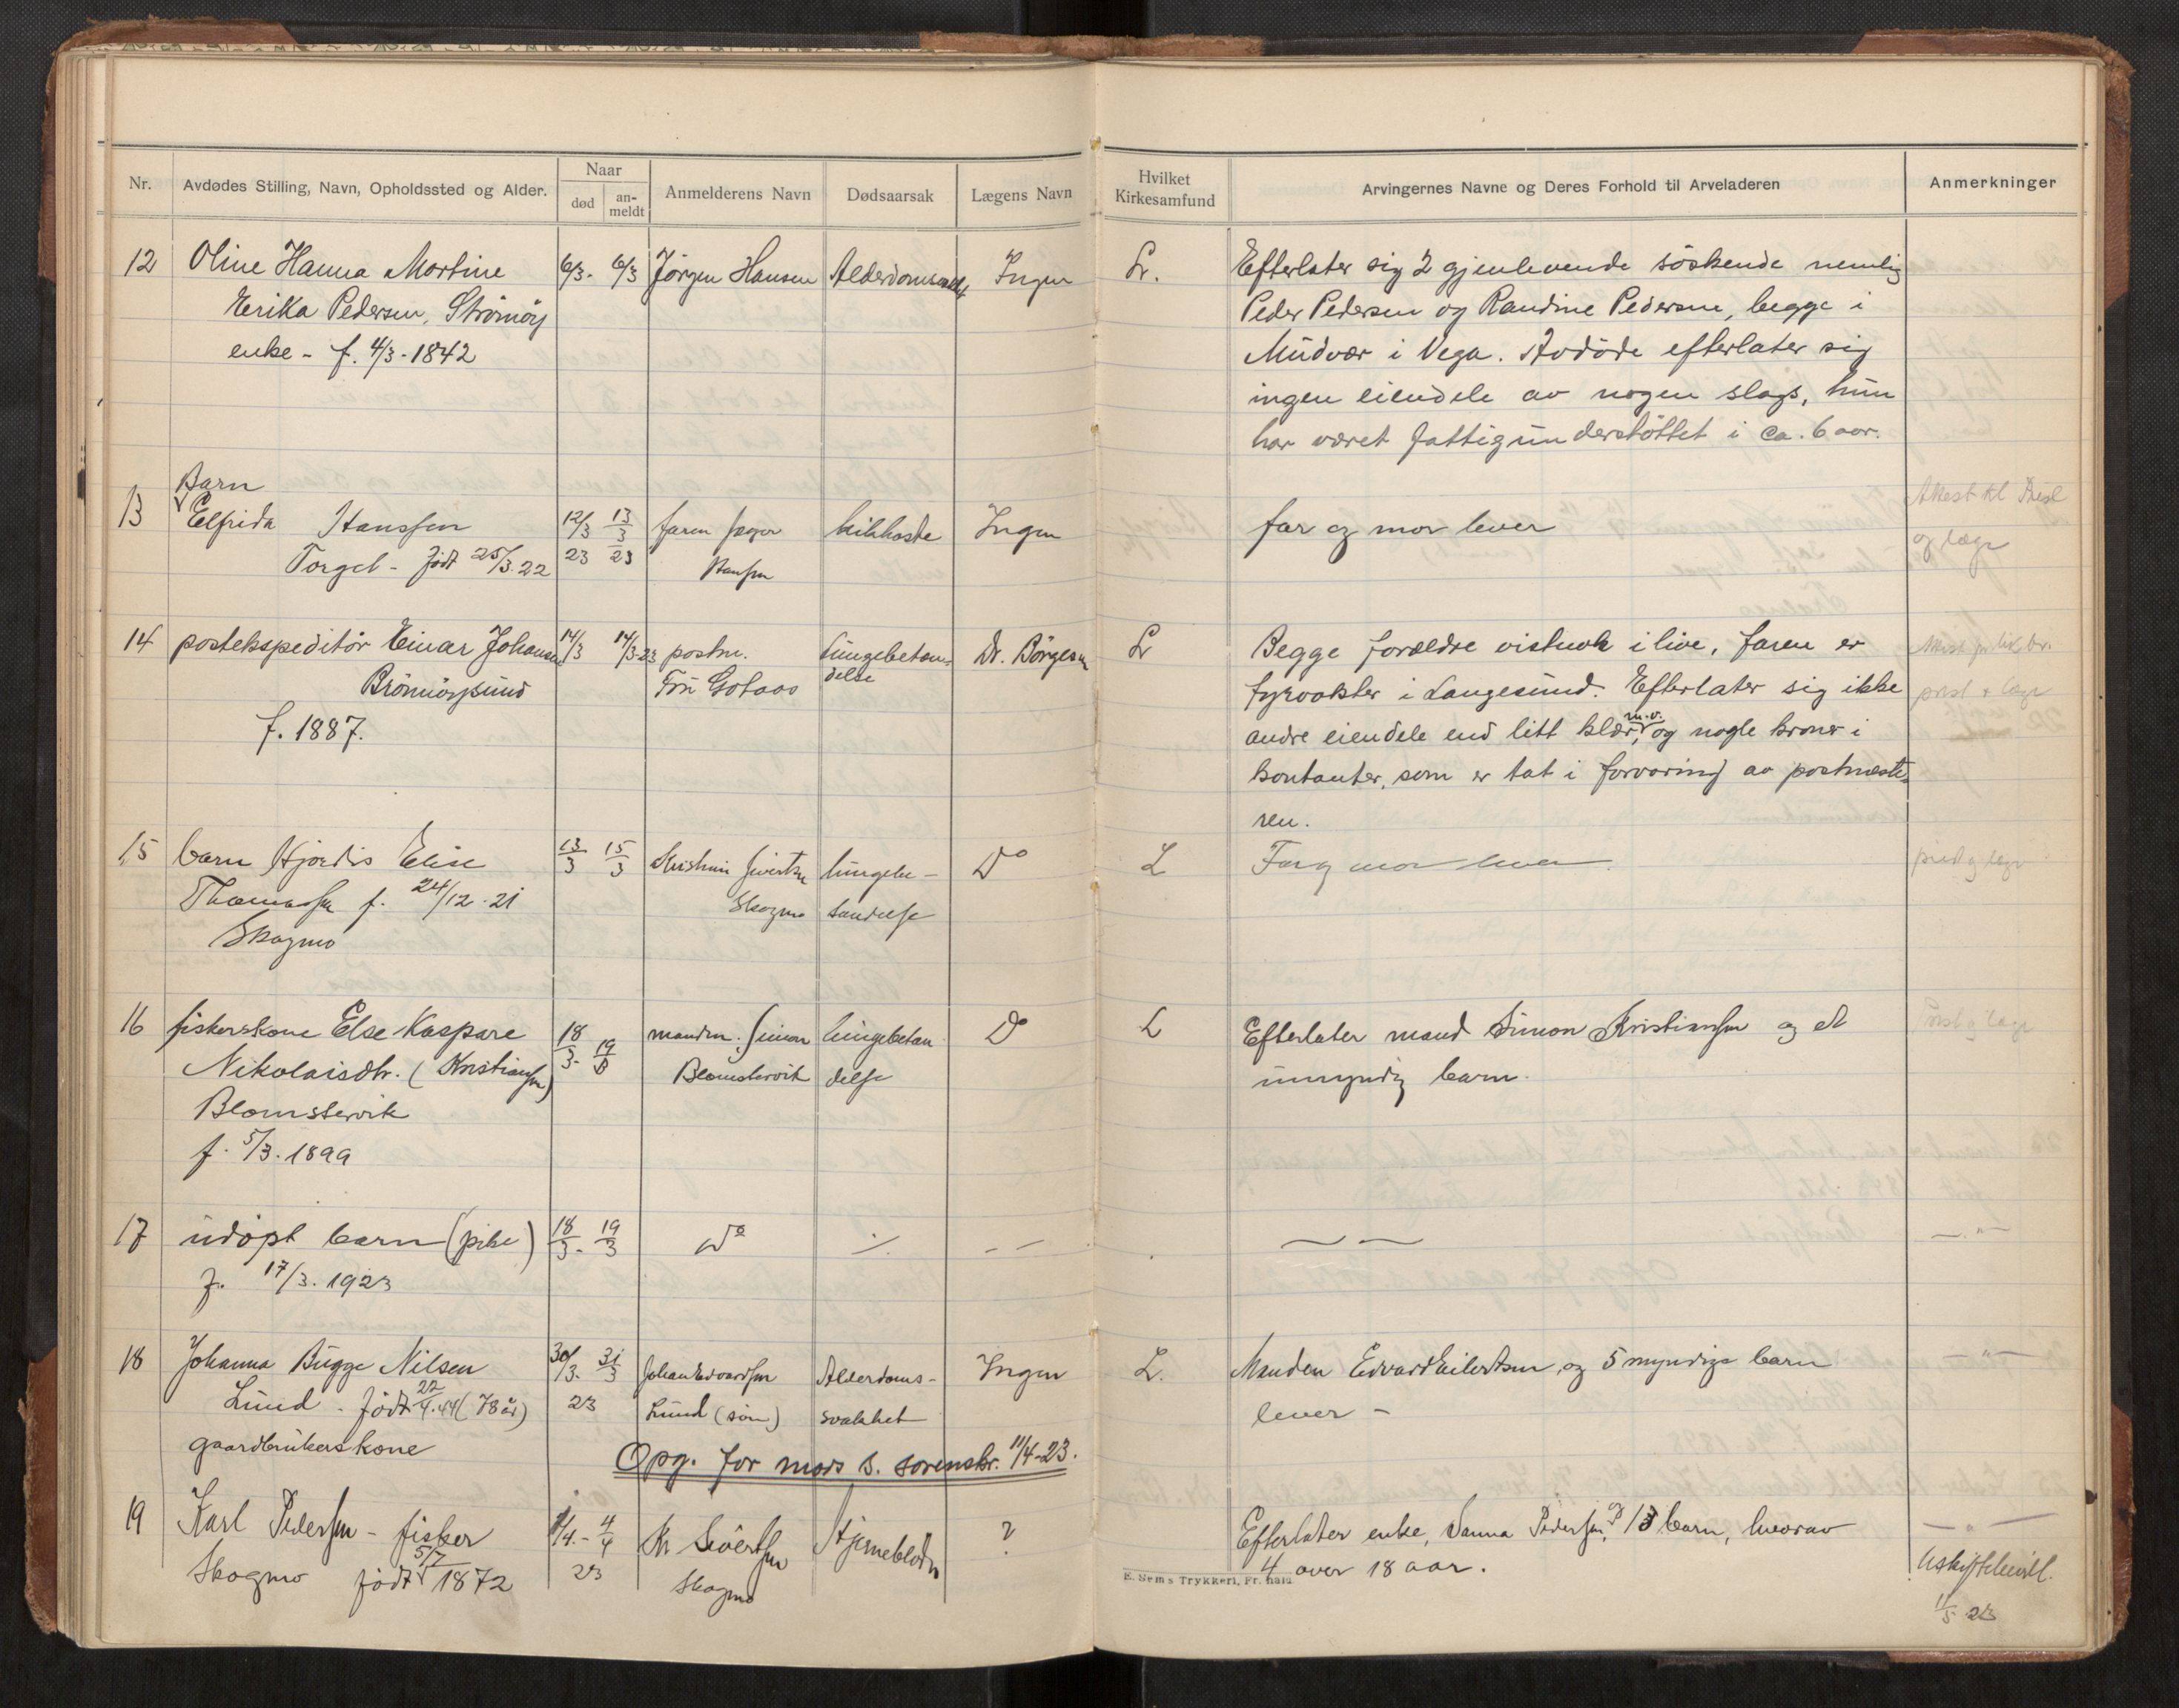 Nr. Avdødes Stilling, Navn, Opholdssted og Alder. Naar død an-meldt Anmelderens Navn Dødsaarsak Lægens Navn Hvilket Kirkesamfund Arvingernes Navne og Deres Forhold til Arveladeren Anmerkninger
12 Oline Hanna Martine 6/3. 6/3 Jörgen Hansen Alderdomssvakh Ingen Lr. Efterlater sig 2 gjenlevende söskende nemlig
Erika Pedersen, Strömöy Peder Pedersen og Randine Pedersen, begge i
enke - f. 4/3-1842 Mudvær i Vega. Avdöde efterlater sig
ingen eiendele av nogen slags, hun
har været fattigunderstöttet i ca. 6 aar.
Barn
13 Elfrida Hanssen 12/3 23 13/3 23 faren kikhoste Ingen far og mor lever Attest til Presl
Torget - født 25/3.22 Hansen og læge
14 postekspeditör Einar Johansen 14/3 14/3 23 postm. Lungebetæn= Dr. Börgesen Lr Begge forældre vistnok ilive, faren er
Brönnöysund Frü Gotaas delse fyrvokter i Langesund. Efterlater sig ikke prest + læge
f. 1887. andre eiendele end litt klær, m.v. og nogle kroner i
kontanter, som er tat i forvaring av postmeste=
ren.
15 barn Hjordis Elise 13/3 15/3 Kristian Sivertsen lungebe- Do L Far og mor lever. prest og læge
Thomassen f. 24/12.21 Skogmo tændelse
Skogmo
16 fiskerskone Else Kaspare 18/3. 19/3 manden Simon lungebetæn Do L Efterlater mand Simon Kristiansen og et Prest og læge
Nikolaisdtr. (Kristiansen) Blomstervik delse umyndig barn.
Blomstervik
f. 5/3.1899
17 udöpt barn (pike) 18/3. 19/3 Do ./. — — — — — " —
f. 17/3.1923
18 Johanna Bugge Nilsen 30/3. 31/3 Johan Edvardsen Alderdoms- Ingen L. Manden Edvard Eilertsen, og 5 myndige barn — " —
Lund - født 22/4.44 (78 år) 23 Lund (sön) svakhet lever -
gaardbrukerskone
Opg. for mors s. sorenskr. 11/4-23.
19 Karl Pedersen - fisker 1/4. - 4/4 Kr Sivertsen Hjerneblödn ? Efterlater enke, Sanna Pedersen, og 13 barn, hvorav — " —
Skogmo født 5/7 1872 23 Skogmo 4 over 18 aar. Uskiftebevill.
11/5 23
E. Sem's Trykkeri, Fr.hald